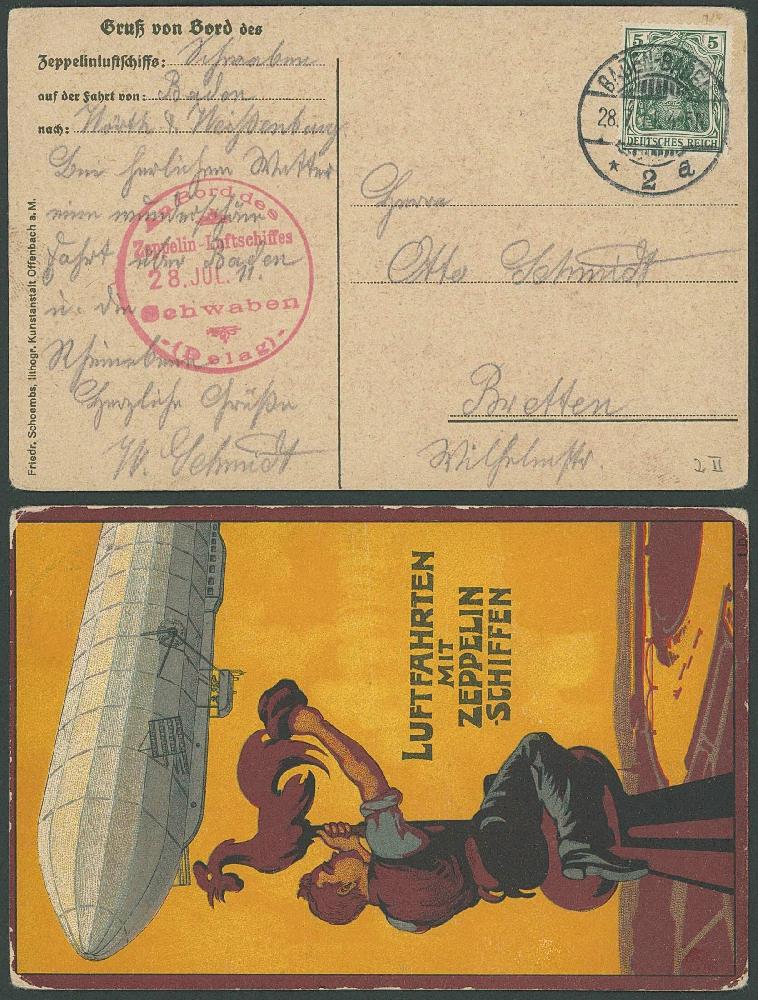 Gruß von Bord des
Zeppelinluftschiffs: Schwaben
auf der Fahrt von: Baden
nach: Wörth & Weißenburg
Bei herlichem Wetter
eine wunderschöne
Fahrt über Baden
u. die
Rheinebene
Herzliche Grüße
W. Schmidt
An Bord des
Zeppelin-Luftschiffes
28.JUL.11.
Schwaben
-(Delag)-
Friedr. Schoembs, lithogr. Kunstanstalt Offenbach a. M.
5 5
DEUTSCHES REICH
BADEN-BADEN
28.
* 2 a
Herrn
Otto Schmidt
Bretten
Wilhelmstr.
2 II
LUFTFAHRTEN
MIT
ZEPPELIN
-SCHIFFEN